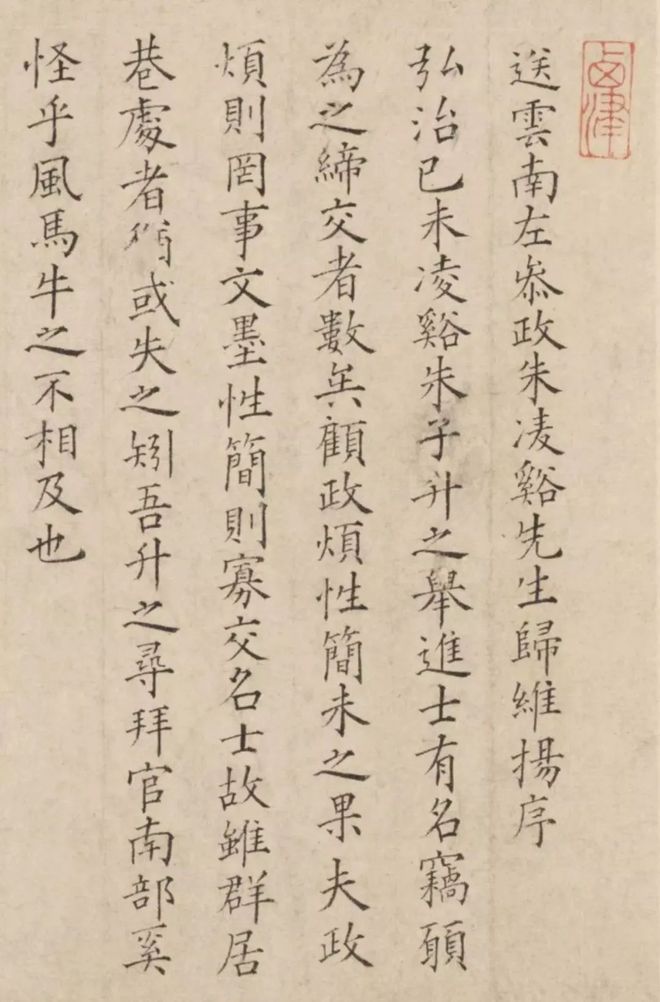 卤津
送雲南左叅政朱凌谿先生歸維揚序
弘治己未凌谿朱子升之舉進士有名竊願
為之締交者數矣顧政煩性簡未之果夫政
煩則罔事文墨性簡則寡交名士故雖群居
巷處者猶或失之矧吾升之尋拜官南部奚
怪乎風馬牛之不相及也